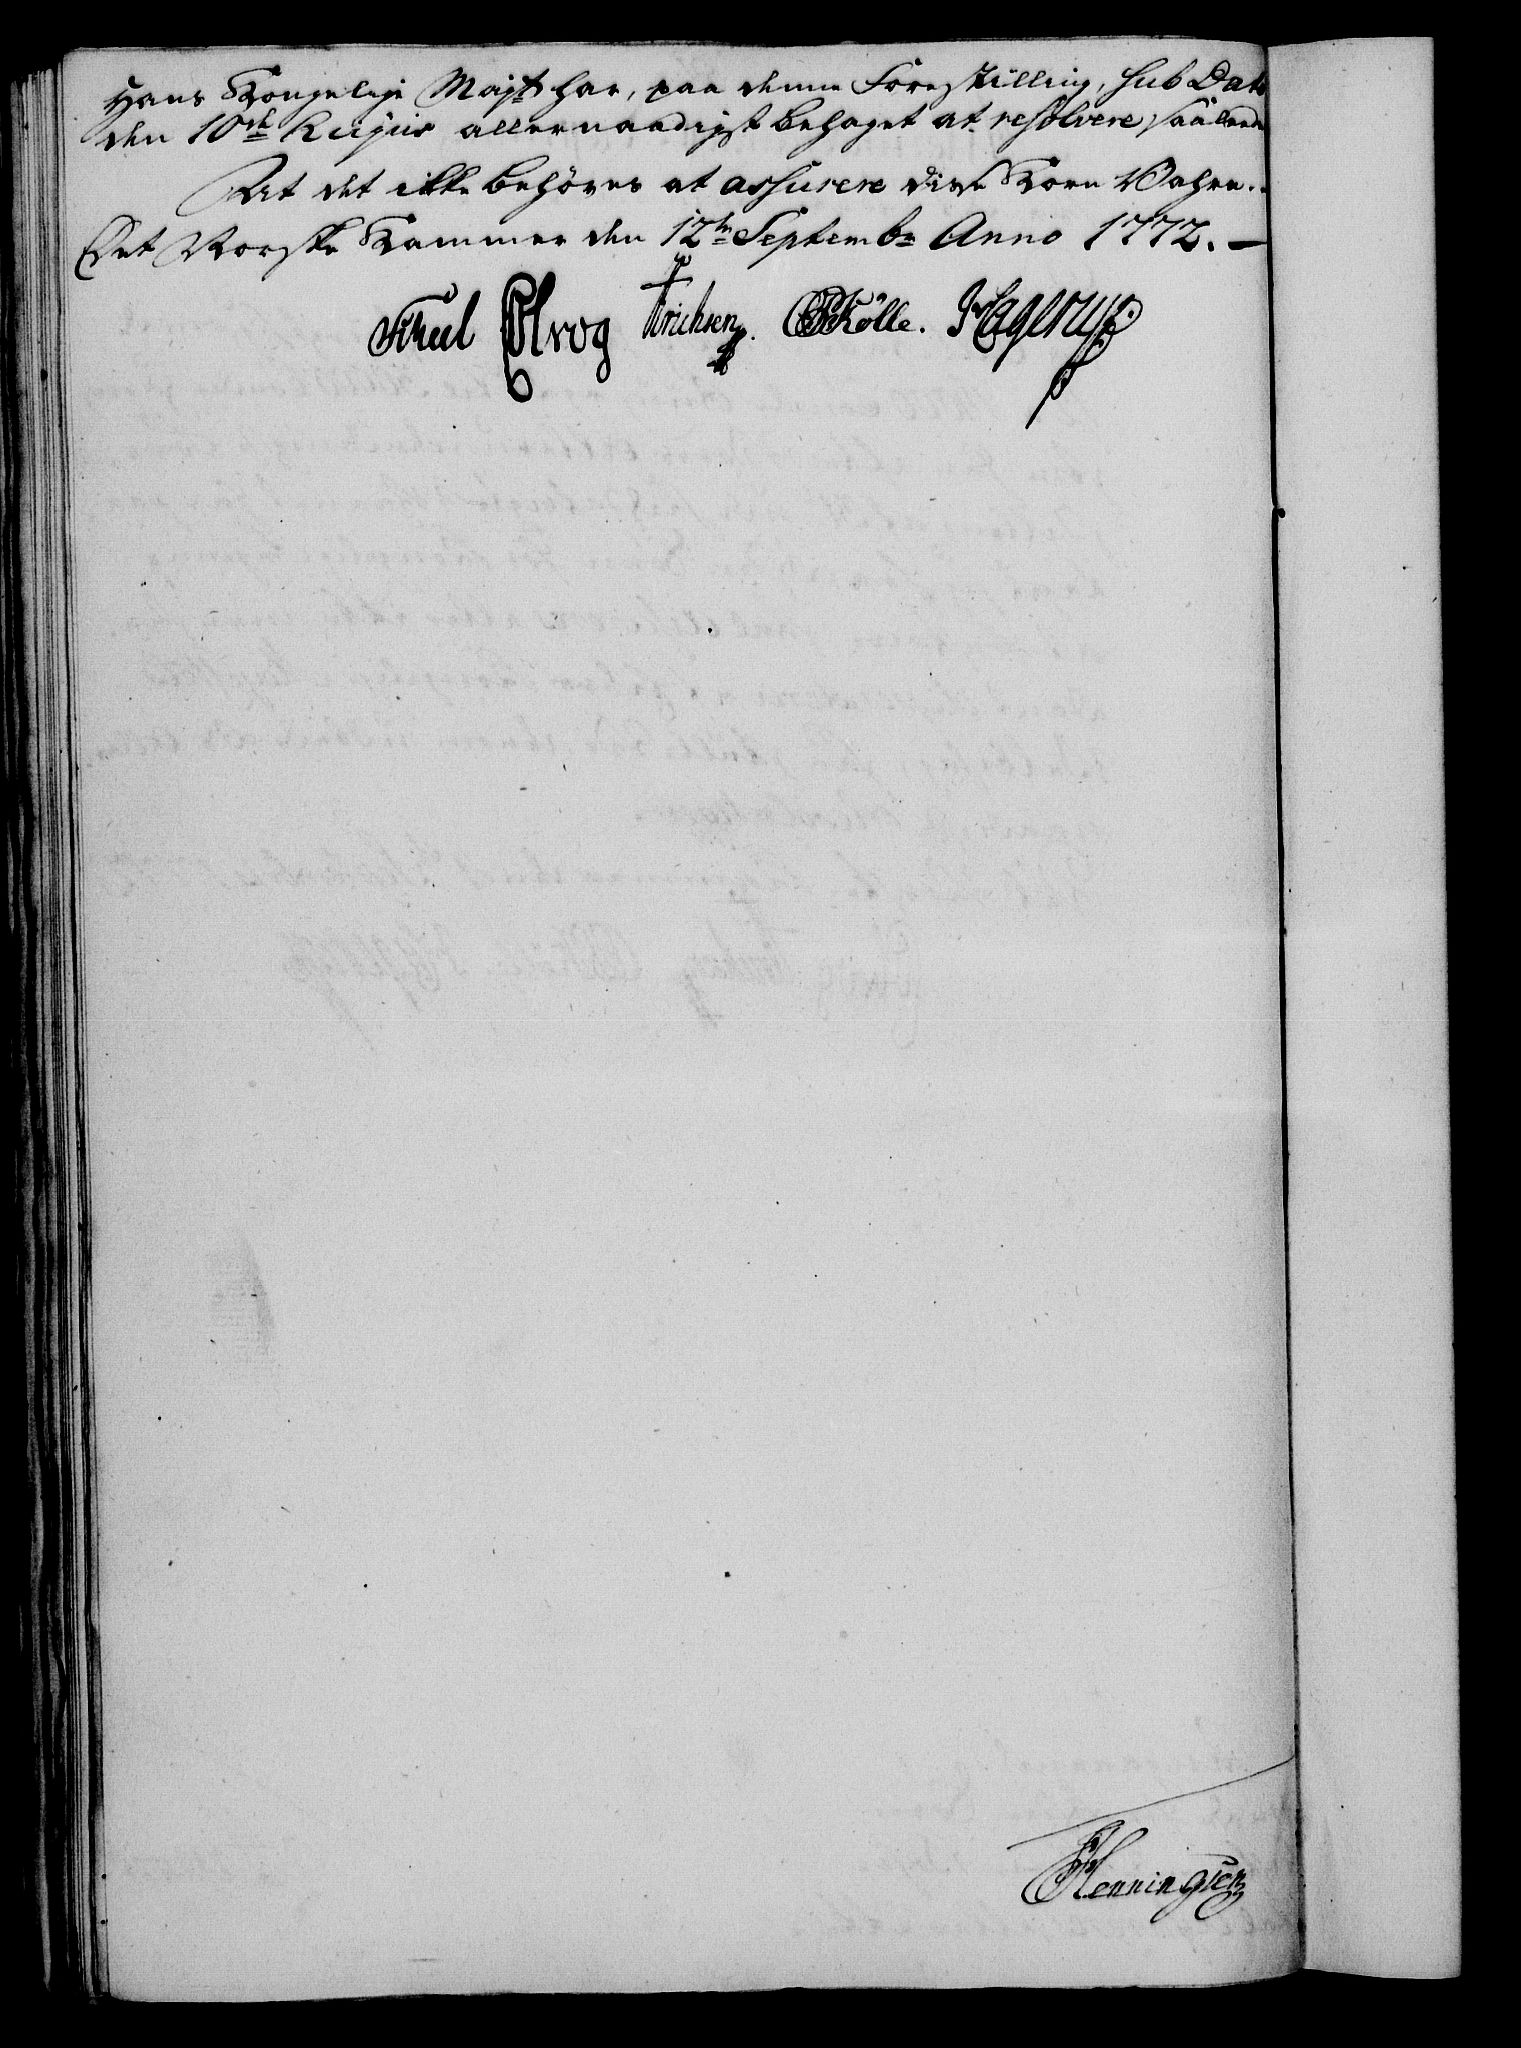 Hans Kongelige Majt har, paa denne Forestilling, sub Dato
den 10de hujus allernaadigst behaget at resolvere saaledes
At det ikke behöves at assurere disse Korn Vahre.
Det Norske Kammer den 12te Septembr Anno 1772. —
Erichsen. Kölle. Hagerup.
Henningsen